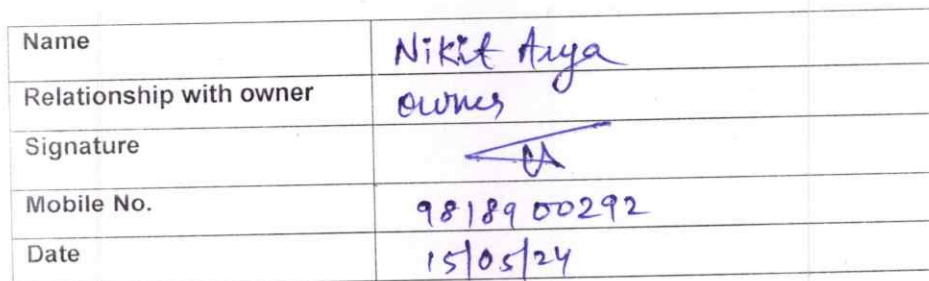 Name Nikit Arya
Relationship with owner owner
Signature
Mobile No. 9818900292
Date 15/05/24